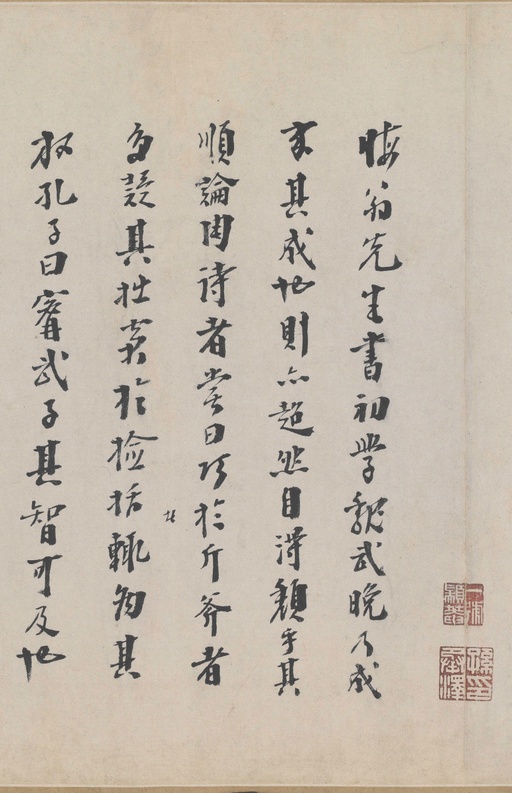 晦翁先生書初學魏武晚乃成
家其成也則亦超然自得頹乎其
順論陶詩者嘗曰巧於斤斧者
多疑其拙窘於檢括輒病其
放孔子曰甯武子其智可及也